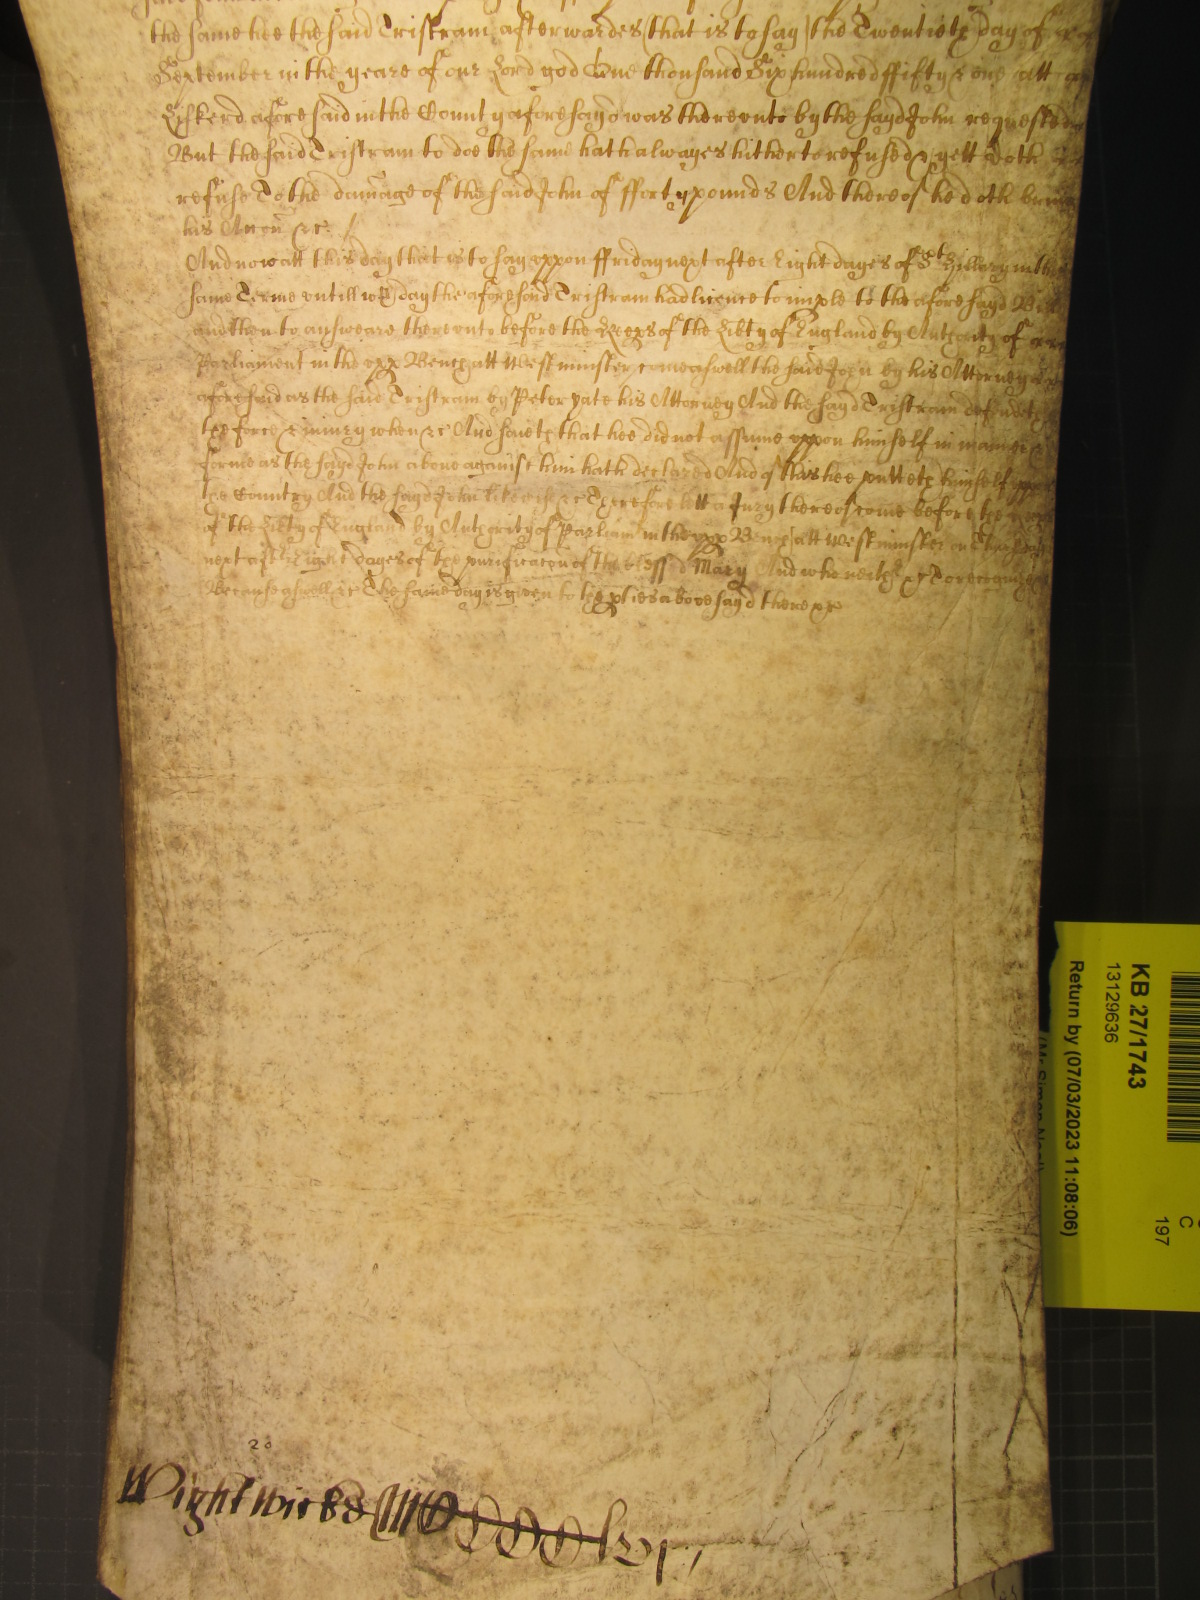 the same hee the said Tristram afterwardes (that is to say) the Twentieth day of
September in the yeare of our Lord god One thousand Six hundred ffifty & one att
Liskerd aforesaid in the County aforesayd was therevnto by the sayd John requested
But the said Tristram to doe the same hath alwayes hitherto refused & yett doth
refuse To the damage of the said John of fforty pounds And thereof he doth bring
his Accon &c. /
And now att this day that is to say vppon ffriday next after Eight dayes of St Hillary in this
same Terme vntill wch day the aforesaid Tristram had licence to imple to the afore sayd Bill
and then to answeare therevnto before the Keeps of the Libty of England by Authority of
Parliament in the vpp Bench att Westminster come aswell the said John by his Attorney
aforesaid as the said Tristram by Peter yate his Attorney And the sayd Tristram defendeth
the force & iniury when &c And saieth that hee did not assume vppon himself in manner &
forme as the sayd John aboue against him hath declared And of this hee putteth himself vppon
the Country And the sayd John likewise &c Therefore lett a Jury thereof come before the
of the Libty of England by Authority of Parliam in the vpp Bench att Westminster on
next after Eight dayes of the purificacon of the blessed Mary And who neithr &c To recognize
Because aswell &c The same day is given to the pties above sayd there &c
20
Wightwicke
KB 27/1743
13129636
Return by (07/03/2023 11:08:06)
197
C